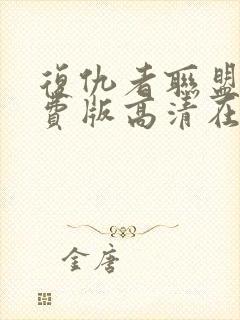 復仇者聯盟
費版高清在
金唐